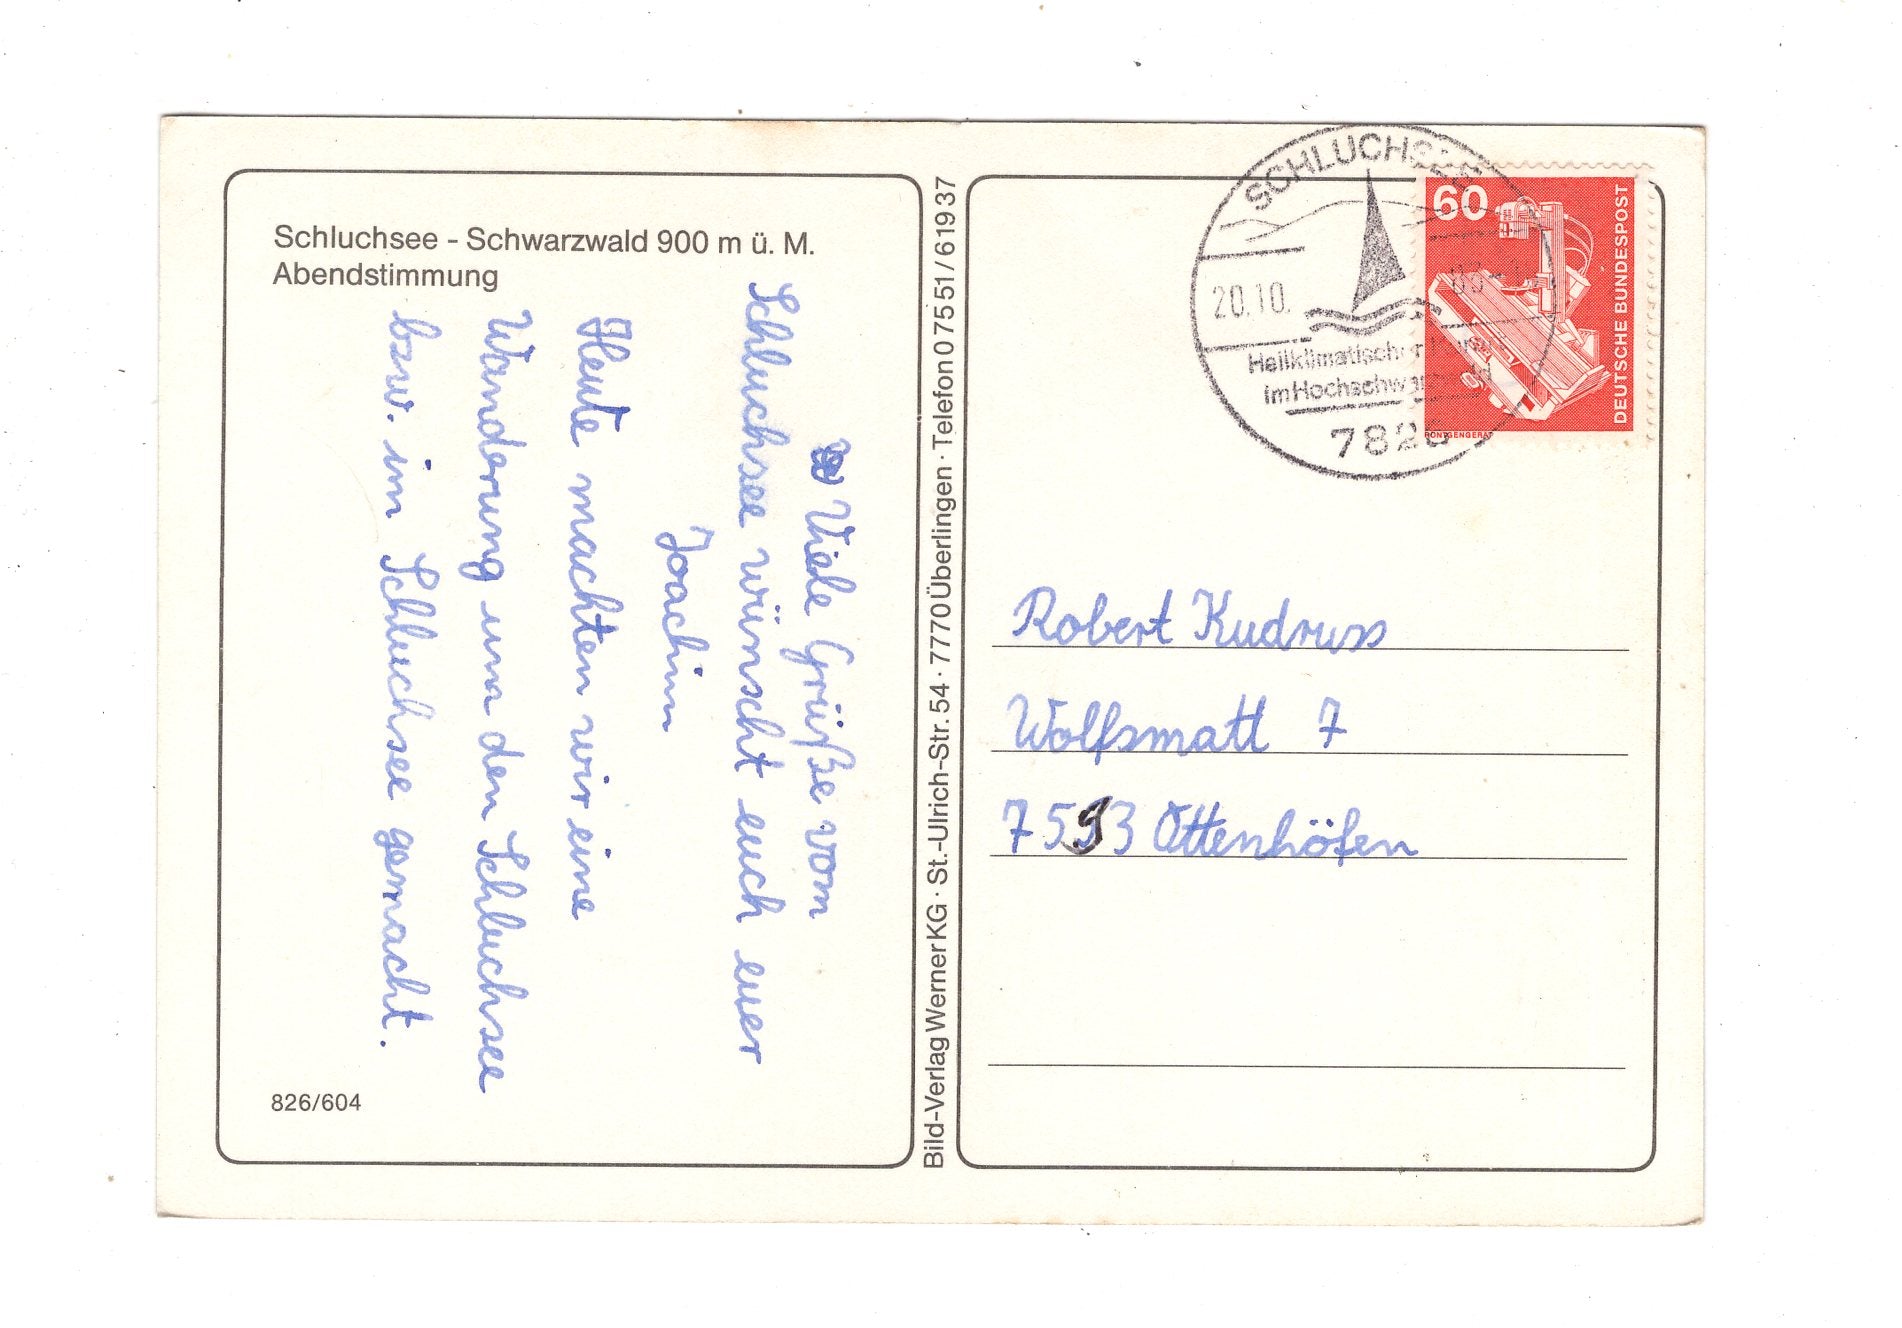 Schluchsee - Schwarzwald 900 m ü. M.
Abendstimmung
Viele Grüße vom
Schluchsee wünscht euch euer
Joachim
Heute machten wir eine
Wanderung um den Schluchsee
bzw. im Schluchsee gemacht.
826/604
Bild-Verlag Werner KG · St.-Ulrich-Str. 54 · 7770 Überlingen · Telefon 0 75 51 / 6 19 37
SCHLUCHSEE
20.10.
Heilklimatischer
im Hochschwarzwald
7826
60
DEUTSCHE BUNDESPOST
RÖNTGENGERÄT
Robert Kudruss
Wolfsmatt 7
7593 Ottenhöfen